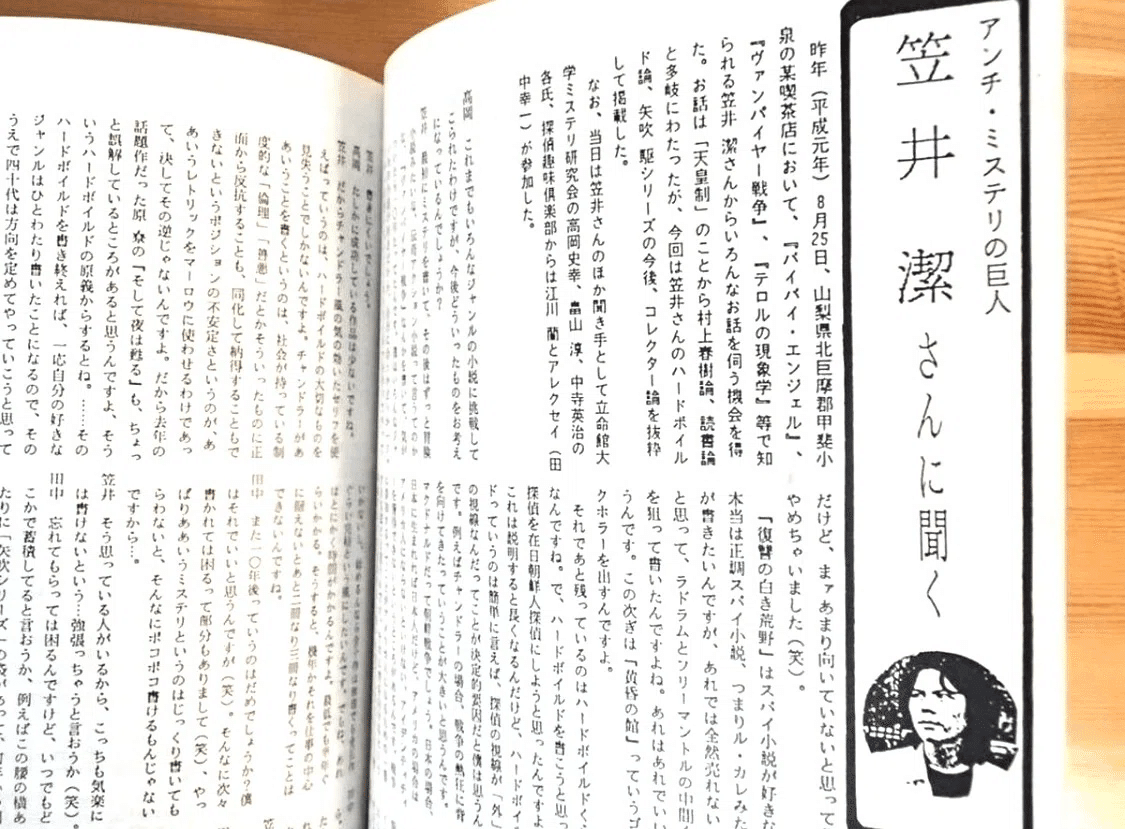 アンチ・ミステリの巨人
笠井 潔さんに聞く
昨年（平成元年）8月25日、山梨県北巨摩郡甲斐小
泉の某喫茶店において、『バイバイ・エンジェル』、
『ヴァンパイヤー戦争』、『テロルの現象学』等で知
られる笠井 潔さんからいろんなお話を伺う機会を得
た。お話は「天皇制」のことから村上春樹論、読書論
と多岐にわたったが、今回は笠井さんのハードボイル
ド論、矢吹 駆シリーズの今後、コレクター論を抜粋
して掲載した。
なお、当日は笠井さんのほか聞き手として立命館大
学ミステリ研究会の高岡史幸、畠山 淳、中寺英治の
各氏、探偵趣味倶楽部からは江川 蘭とアレクセイ（田
中幸一）が参加した。
高岡 これまでもいろんなジャンルの小説に挑戦して
こられたわけですが、今後どういったものをお考え
になっているんでしょうか？
笠井 最初にミステリを書いて、その後はずっと冒険
だけど、まァあまり向いていないと思って
やめちゃいました（笑）。
『復讐の白き荒野』はスパイ小説が好きな
本当は正調スパイ小説、つまりル・カレみた
が書きたいんですが、あれでは全然売れない
と思って、ラドラムとフリーマントルの中間
を狙って書いたんですよね。あれはあれでいい
うんです。この次ぎは『黄昏の館』っていうゴ
クホラーを出すんですよ。
それであと残っているのはハードボイルドく
なんですね。で、ハードボイルドを書こうと思
探偵を在日朝鮮人探偵にしようと思ったんですよ
これは説明すると長くなるんだけど、ハードボイ
ドっていうのは簡単に言えば、探偵の視線が「外」
の視線なんだってことが決定的要因だと僕は思うん
です。例えばチャンドラーの場合、戦争の熱狂に背
を向けてきたっていうことが大きいと思うんです。
マクドナルドだって朝鮮戦争でしょう。日本の場合、
日本に生まれれば日本人だけど、アメリカの場合は
笠井 書きにくいでしょう。
高岡 たしかに成功している作品は少ないですね。
笠井 だからチャンドラー風の気の効いたセリフを使
えばっていうのは、ハードボイルドの大切なものを
見失うことでしかないんですよ。チャンドラーがあ
あいうことを書くというのは、社会が持っている制
度的な「倫理」「善悪」だとかそういったものに正
面から反抗することも、同化して納得することもで
きないというポジションの不安定さというのが、あ
あいうレトリックをマーロウに使わせるわけであっ
て、決してその逆じゃないんですよ。だから去年の
話題作だった原 寮の『そして夜は甦る』も、ちょっ
と誤解しているところがあると思うんですよ、そう
いうハードボイルドの原義からするとね。……その
ハードボイルドを書き終えれば、一応自分の好きな
ジャンルはひとわたり書いたことになるので、その
うえで四十代は方向を定めてやっていこうと思って
らいかかる。そうすると、幾年かそれを仕事の中心
に耐えないとあと二冊なり三冊なり書くってことは
できないんですね。
田中 また一〇年後っていうのはだめでしょうか？僕
はそれでいいと思うんですが（笑）。そんなに次々
書かれては困るって部分もありまして（笑）、やっ
ぱりああいうミステリというのはじっくり書いても
らわないと、そんなにポコポコ書けるもんじゃない
ですから…。
笠井 そう思っている人がいるから、こっちも気楽に
は書けないという…強張っちゃうと言おうか（笑）。
田中 忘れてもらっては困るんですけど、いつでもど
こかで蓄積してると言おうか、例えばこの腰の横あ